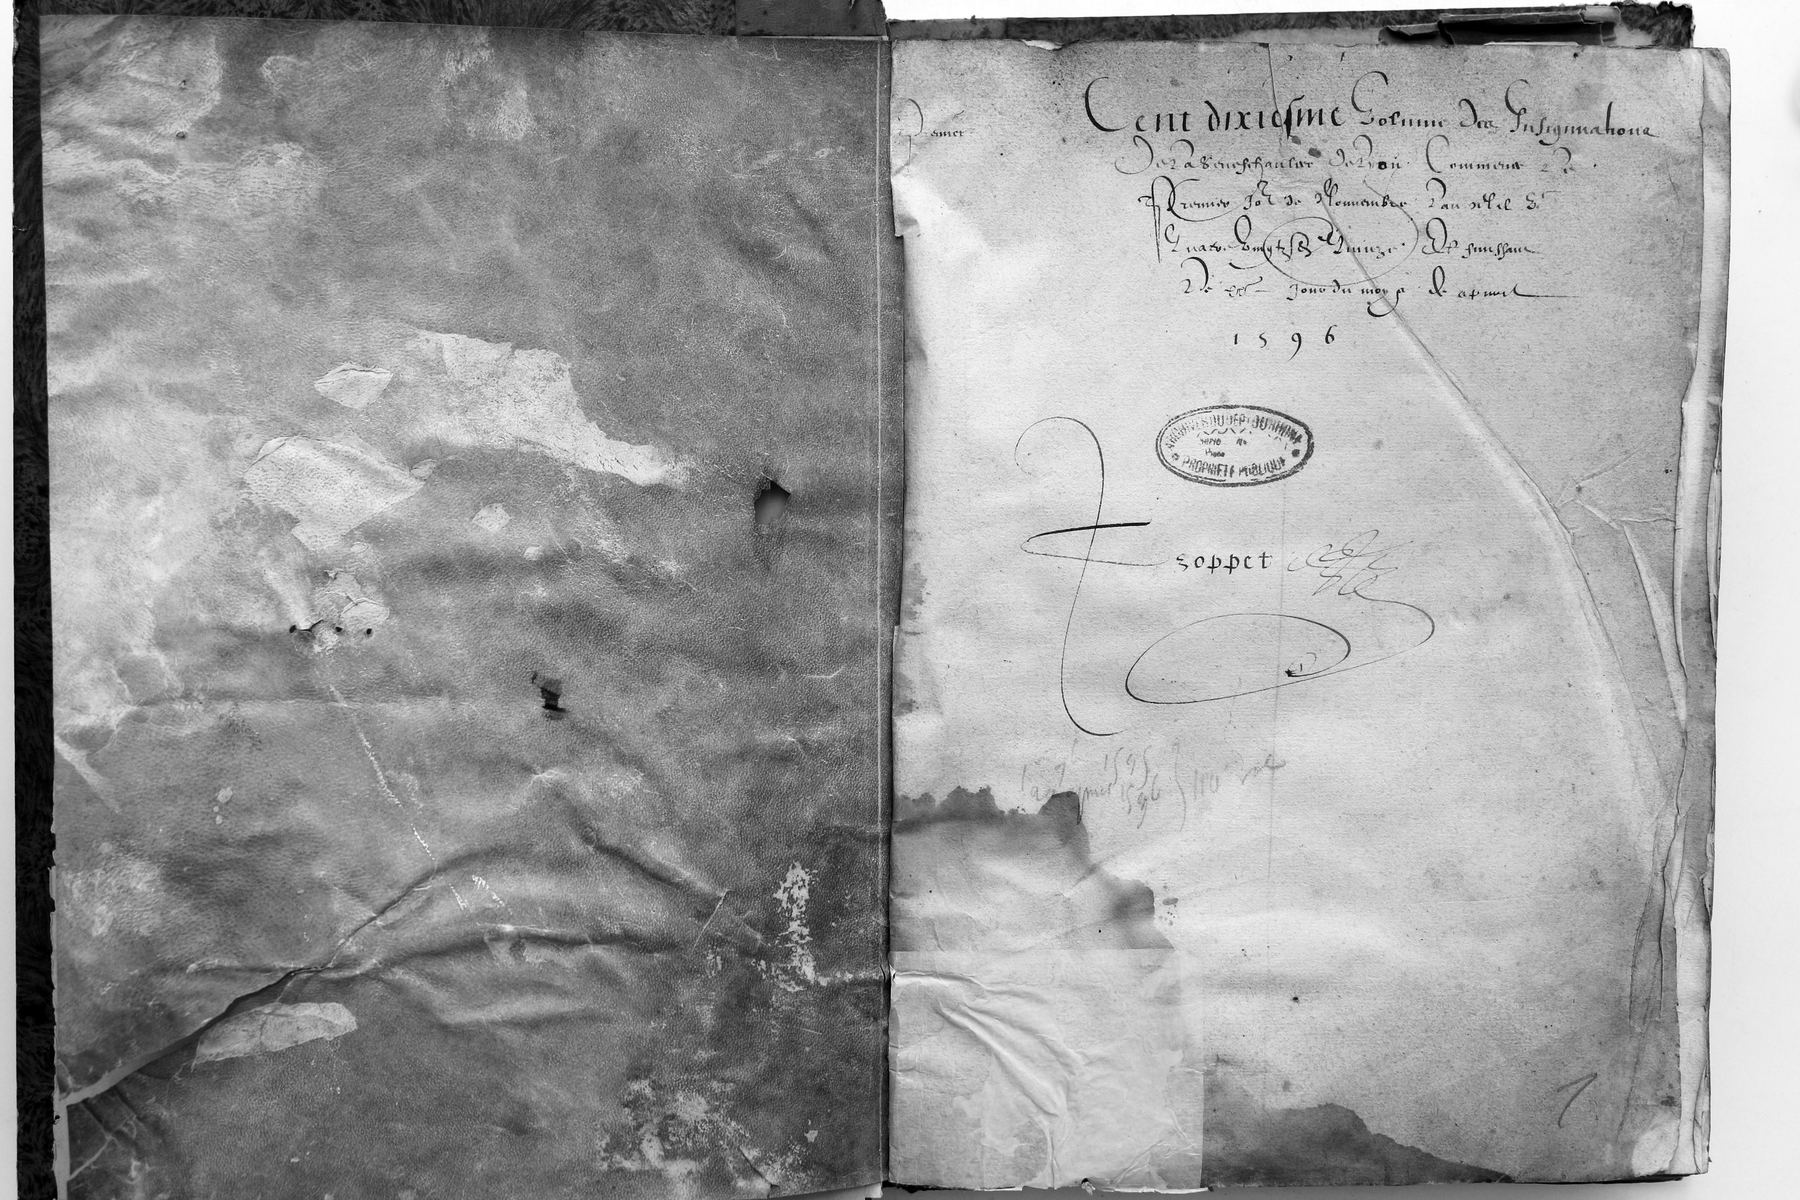 Premier
Cent dixiesme Volume des Insignuations
De La Seneschaulcee De Lyon Commence Le
Premier Jor de Nouembre Lan Mil Vc
Quatre Vingtz Quinze Et finissant
Le jour du moys de apuril
1596
ARCHIVES DU DEPT DU RHONE
PROPRIETE PUBLIQUE
Troppet
1595
1596 110 vol
1